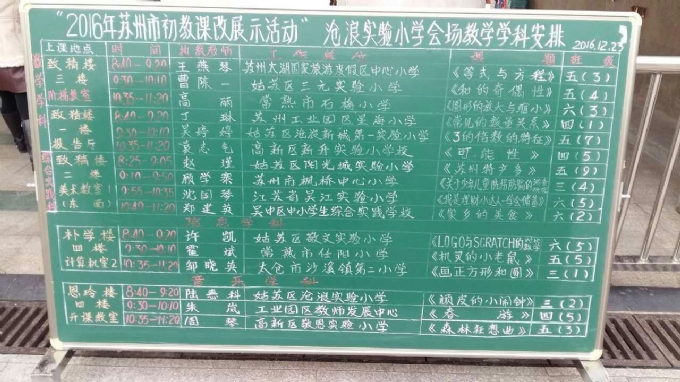 "2016年苏州市初教课改展示活动" 沧浪实验小学会场教学学科安排 2016.12.23
上课地点 时间 执教老师 工作单位 课题 班级
致稿楼 8:40-9:20 王燕琴 苏州太湖国家旅游度假区中心小学 《等式与方程》 五(3)
三楼 9:30-10:10 曹陈一 姑苏区三元实验小学 《和的奇偶性》 五(4)
阶梯教室 10:35-11:20 高丽 常熟市石梅小学 六(3)
致稿楼 8:40-9:20 丁琳 苏州工业园区星海小学 《常见的数量关系》 四(1)
一楼 9:30-10:10 吴婷婷 姑苏区沧浪新城第一实验小学 《3的倍数的特征》 五(7)
报告厅 10:35-11:20 袁志 高新区新升实验小学校 《可能性》 四(5)
致稿楼 8:25-9:05 赵瑾 姑苏区阳光城实验小学 《苏州特产多》 五(9)
二楼 9:10-9:50 顾学 苏州市枫桥中心小学 三(4)
美术教室1 9:55-10:35 沈国琴 江苏省吴江实验小学 六(5)
(东面) 10:40-11:20 郑建英 吴中区中小学生综合实践学校 《家乡的美食》 六(2)
信息学科
朴学楼 8:40-9:20 许凯 姑苏区敬文实验小学 《LOGO与SCRATCH的 六(5)
四楼 9:30-10:10 霍斌 常熟市任阳小学 《机灵的小老鼠》 五(5)
计算机室2 10:35-11:20 邹晓英 太仓市沙溪镇第二小学 《画正方形和圆》 三(1)
音乐学科
恩玲楼 8:40-9:20 陆科 姑苏区沧浪实验小学 《顽皮的小闹钟》 三(2)
四楼 9:30-10:10 朱岚 工业园区教师发展中心 《春游》 四(5)
开课教室 10:35-11:20 周琴 高新区敬恩实验小学 《森林狂想曲》 五(3)